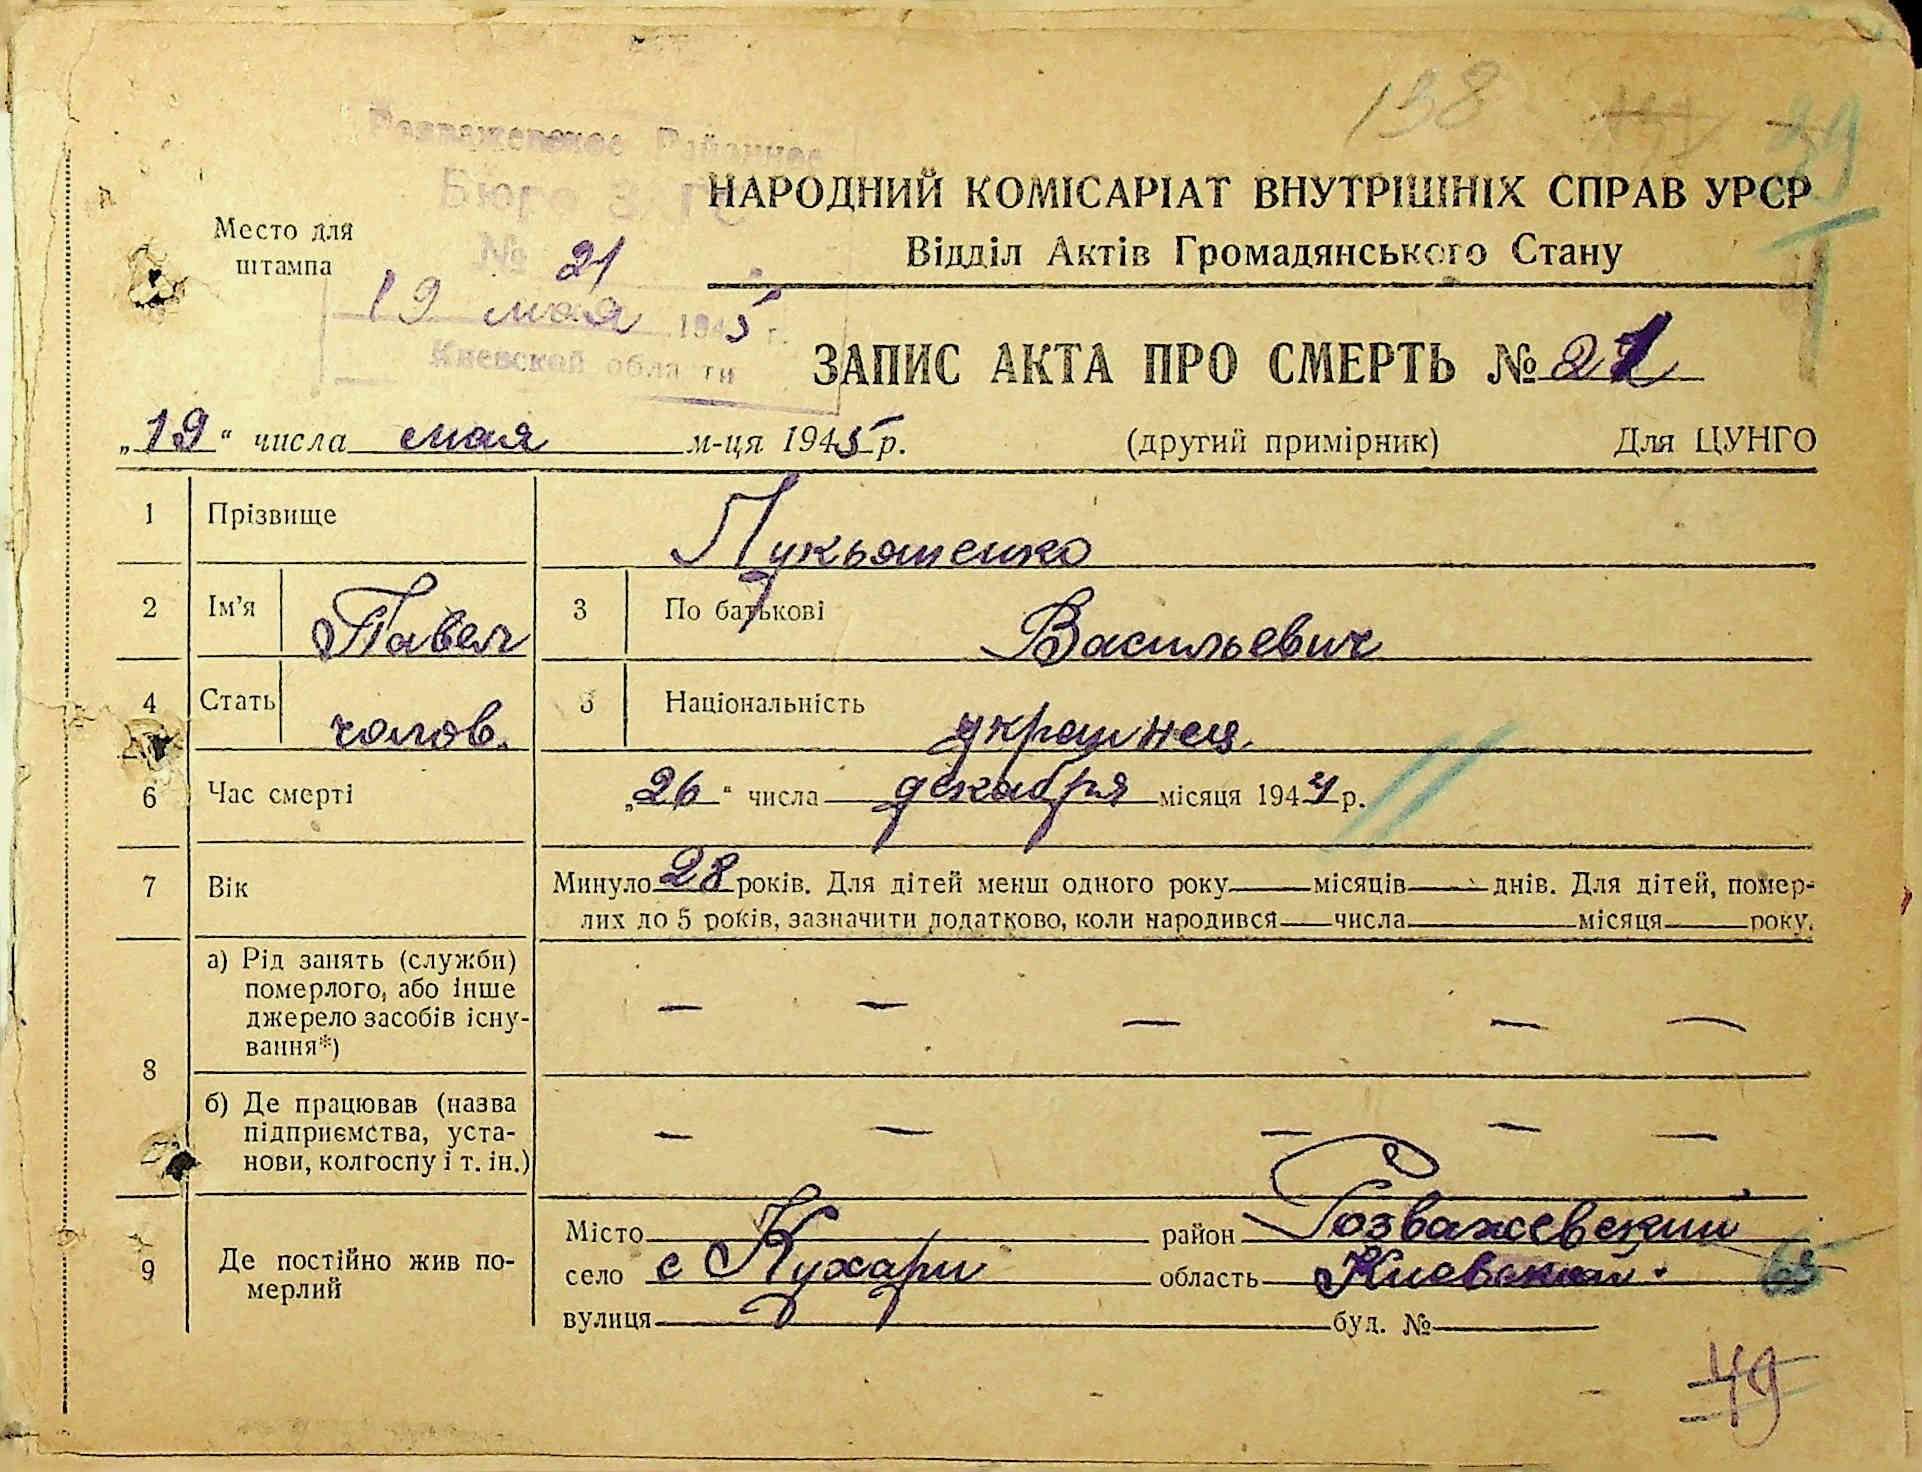 138
Розважевское Районное
Бюро ЗАГС
№ 21
19 мая 1945 г.
Киевской области
Место для
штампа
НАРОДНИЙ КОМІСАРІАТ ВНУТРІШНІХ СПРАВ УРСР
Відділ Актів Громадянського Стану
ЗАПИС АКТА ПРО СМЕРТЬ № 21
„19“ числа мая м-ця 1945 р. (другий примірник) Для ЦУНГО
1 Прізвище Лукьяшенко
2 Ім’я Павел 3 По батькові Васильевич
4 Стать чолов. 5 Національність украинец.
6 Час смерті „26“ числа декабря місяця 1944 р.
7 Вік Минуло 28 років. Для дітей менш одного року місяців днів. Для дітей, помер-
лих до 5 років, зазначити додатково, коли народився числа місяця року.
8 а) Рід занять (служби)
померлого, або інше
джерело засобів існу-
вання*) — — — — —
б) Де працював (назва
підприємства, уста-
нови, колгоспу і т. ін.) — — — — —
9 Де постійно жив по-
мерлий
Місто район Розважевский
село с Кухари область Киевский.
вулиця буд. №
49